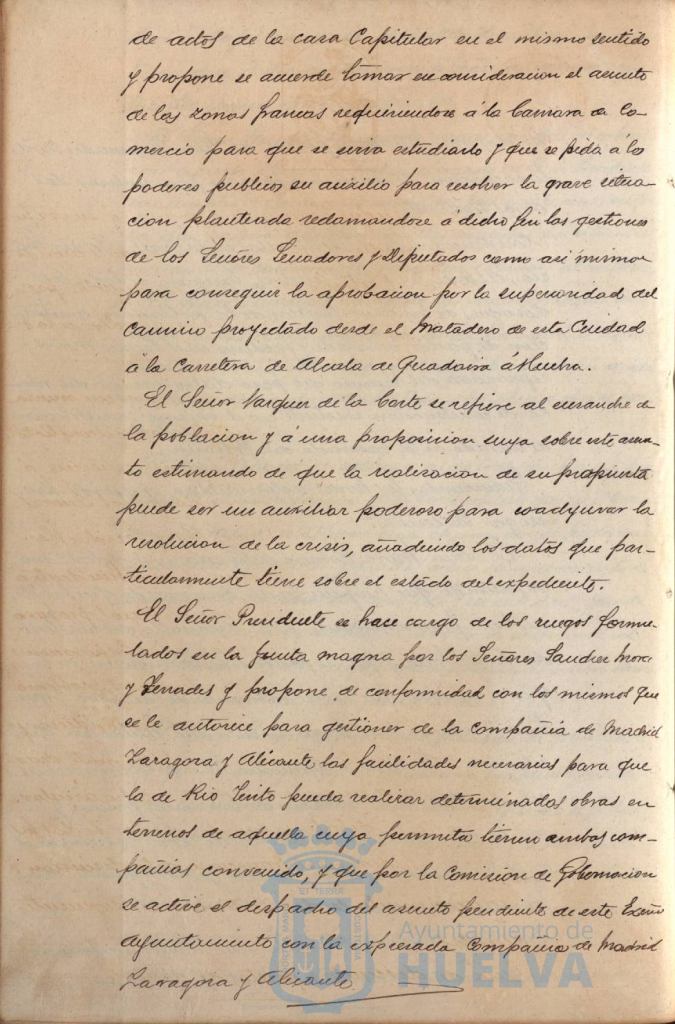 de actos de la casa Capitular en el mismo sentido
y propone se acuerde tomar en consideracion el asunto
de las zonas francas requiriendose á la Camara de Co-
mercio para que se sirva estudiarlo y que se pida á los
poderes publicos su auxilio para resolver la grave situa-
cion planteada reclamandose á dicho fin las gestiones
de los Señores Senadores y Diputados como asi mismo
para conseguir la aprobacion por la superioridad del
camino proyectado desde el Matadero de esta Ciudad
á la carretera de Alcala de Guadaira á Huelva.
El Señor Vazquez de la Corte se refiere al ensanche de
la poblacion y á una proposicion suya sobre este asun-
to estimando de que la realizacion de su propuesta
puede ser un auxiliar poderoso para coadyuvar la
resolucion de la crisis, añadiendo los datos que par-
ticularmente tiene sobre el estado del expediente.
El Señor Presidente se hace cargo de los ruegos formu-
lados en la junta magna por los Señores Sanchez Mora
y Terrades y propone de conformidad con los mismos que
se le autorice para gestionar de la Compañia de Madrid
Zaragoza y Alicante las facilidades necesarias para que
la de Rio Tinto pueda realizar determinadas obras en
terrenos de aquella cuya permuta tienen ambas com-
pañias convenido, y que por la Comision de Gobernacion
se active el despacho del asunto pendiente de este Excmo
Ayuntamiento con la expresada Compañia de Madrid
Zaragoza y Alicante
Ayuntamiento de
HUELVA